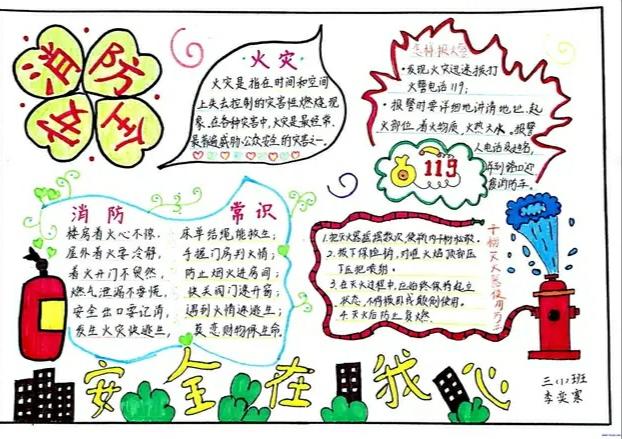 消防
安全
火灾
火灾是指在时间和空间
上失去控制的灾害性燃烧现
象,在各种灾害中,火灾是最经常、
最普遍威胁公众安全的灾害之一。
怎样报火警
·发现火灾迅速拨打
火警电话119;
·报警时要详细地讲清地址、起
火部位、着火物质、火势大小、报警
人电话及姓名,
并到路口迎
接消防车。
119
消防常识
楼房着火心不惊,床单结绳能救生;
屋外着火要冷静,手摸门房判火情;
着火开门不贸然,防止烟火进房间;
燃气泄漏不要慌,快关阀门速开窗;
安全出口要记清,遇到火情速逃生;
发生火灾快逃生,莫恋财物保生命
干粉灭火器使用方法
1.把灭火器摇摇数次,使瓶内干粉松散。
2.拔下保险销,对准火焰
压把喷射。
3.在灭火过程中,应始终保持直立
状态,不得横卧或颠倒使用。
4.灭火后防止复燃.
安全在我心
三(1)班
李奕寒